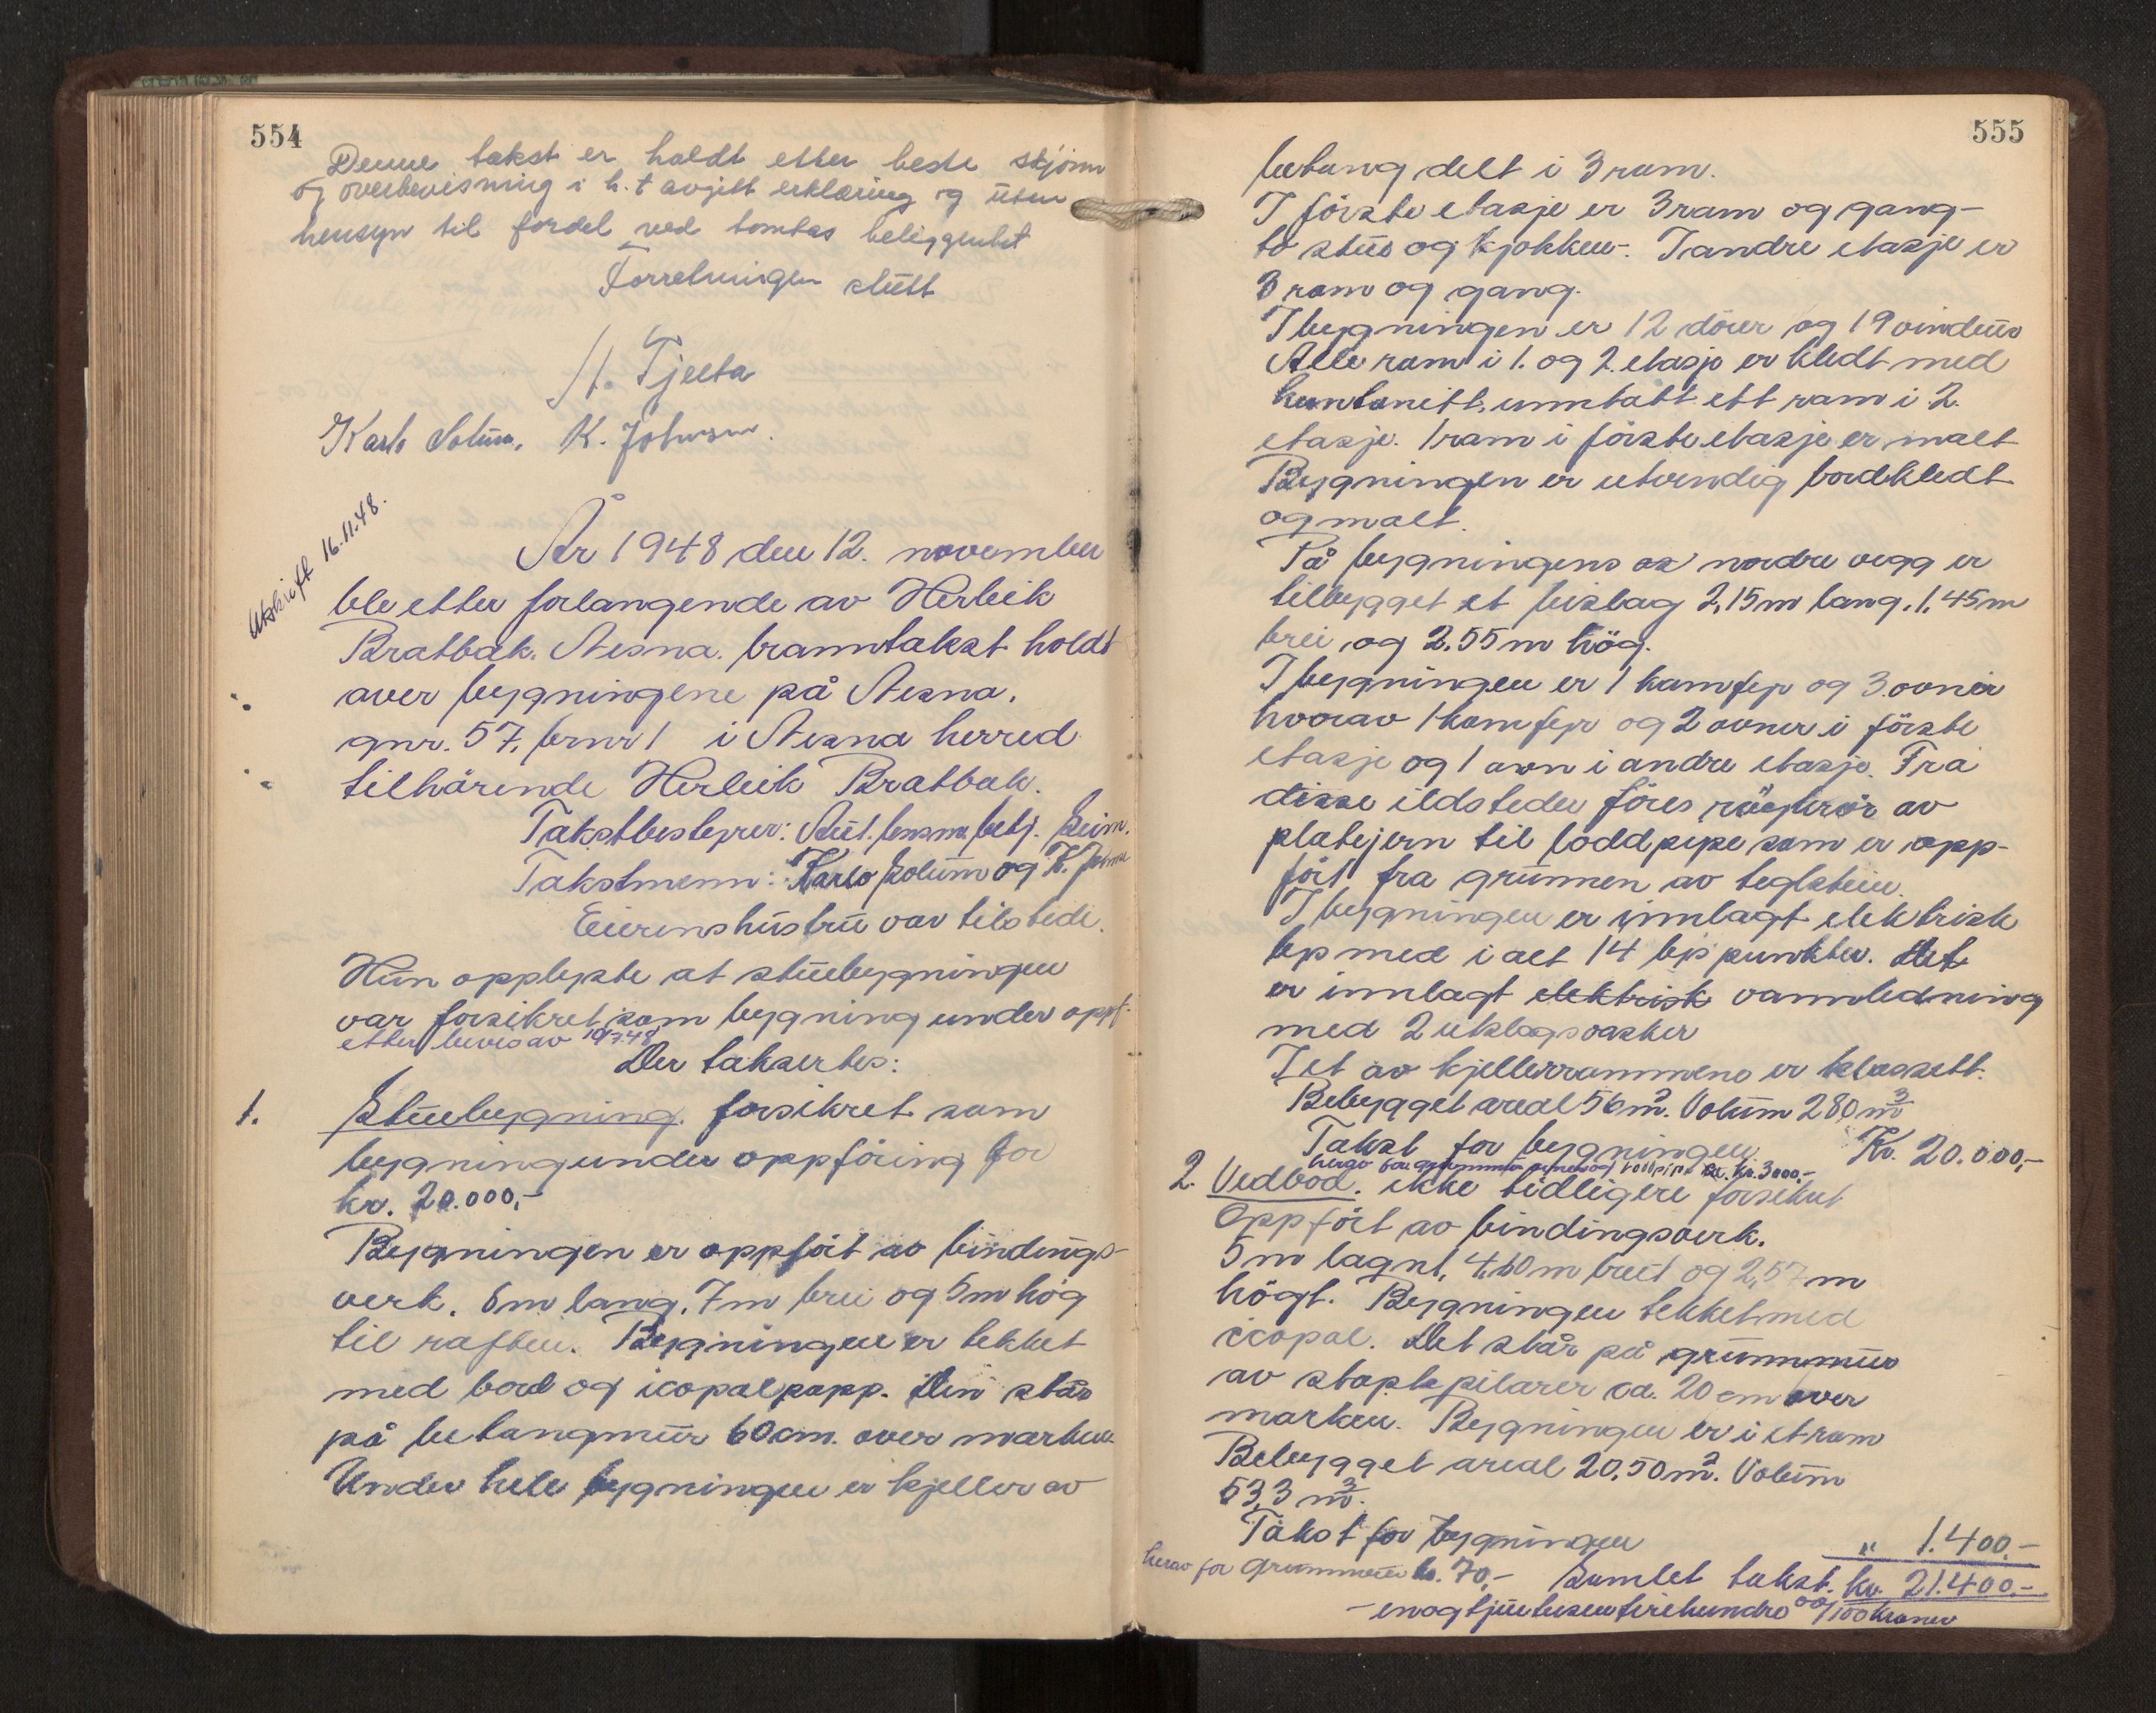 554
Denne takst er holdt etter beste skjönn
og overbevisning i h.t avgitt erklæring og uten
hensyn til fordel ved tomtas beliggenhet
Forretningen slutt
A. Tjeeta
Karlo Solum. K. Johnsen.
Utskrift 16.11.48.
År 1948 den 12. november
ble etter forlangende av Herleik
Bratbak. Nesna. branntakst holdt
over bygningene på Nesna.
gnr. 57, brnr 1 i Nesna herred
tilhörende Herleik Bratbak.
Takstbestyrer: Aut. lensm. betj.
Takstmenn: Karlo Solum og K. Johnsen
Eierens hustru var tilstede.
Hun opplyste at stuebygningen
var forsikret som bygning under oppf.
etter bevis av 19/7.48
Der taksertes:
1. Stuebygning. forsikret som
bygning under oppföring for
kr. 20.000,-
Bygningen er oppfört av bindings-
verk. 8m lang. 7m brei og 5m hög
til raften. Bygningen er tekket
med bord og icopalpapp. Den står
på betongmur 60cm. over marken.
Under hele bygningen er kjeller av
555
betong delt i 3 rom.
I förste etasje er 3 rom og gang-
to stuer og kjökken-. I andre etasje er
3 rom og gang.
I bygningen er 12 dörer og 19 vinduer
Alle rom i 1. og 2. etasje er kledt med
huntonitt, unntatt ett rom i 2.
etasje. 1 rom i förste etasje er malt
Bygningen er utvendig bordkledt
og malt.
På bygningens os nordre vegg er
tilbygget et bislag 2,15m lang, 1,45m
brei og 2.55m hög.
I bygningen er 1 komfyr og 3 ovner
hvorav 1 komfyr og 2 ovner i förste
etasje og 1 ovn i andre etasje. Fra
disse ildsteder föres röykrör av
platejern til loddpipe som er opp-
fört fra grunnen av teglstein.
I bygningen er innlagt elektrisk
lys med i alt 14 lyspunkter. Det
er innlagt elektrisk vannledning
med 2 utslagsvasker
I et av kjellerrommene er klossett.
Bebygget areal 56m². Volum 280m³
Takst for bygningen Kr. 20.000,-
herav for grunnmur loddpipe kr. 3000,-
2. Vedbod. ikke tidligere forsikret
Oppfört av bindingsverk.
5m lagnt, 4,10m breit og 2,57m
högt. Bygningen tekket med
icopal. Det står på grunnmur
av stöpte pilarer ca. 20cm over
marken. Bygningen er i et rom
Bebygget areal 20.50m². Volum
53,3m³.
Takst for bygningen " 1.400.-
herav for grunnmur kr. 70,- Samlet takst. kr. 21.400.-
- enogtjuetusenfirehundre 00/100 kroner